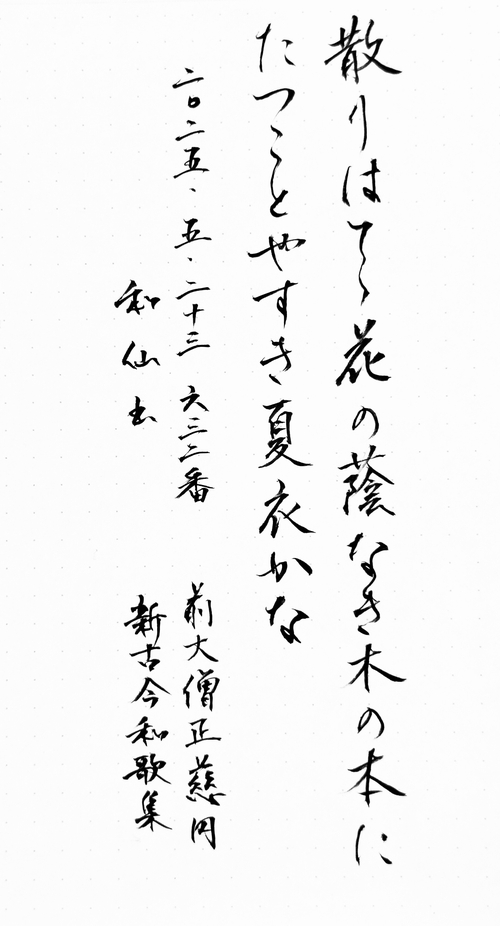 散りはてゝ花の蔭なき木の本に
たつことやすき夏衣かな
二〇二五、五、二十三 六三二番
前大僧正慈円
和仙书
新古今和歌集